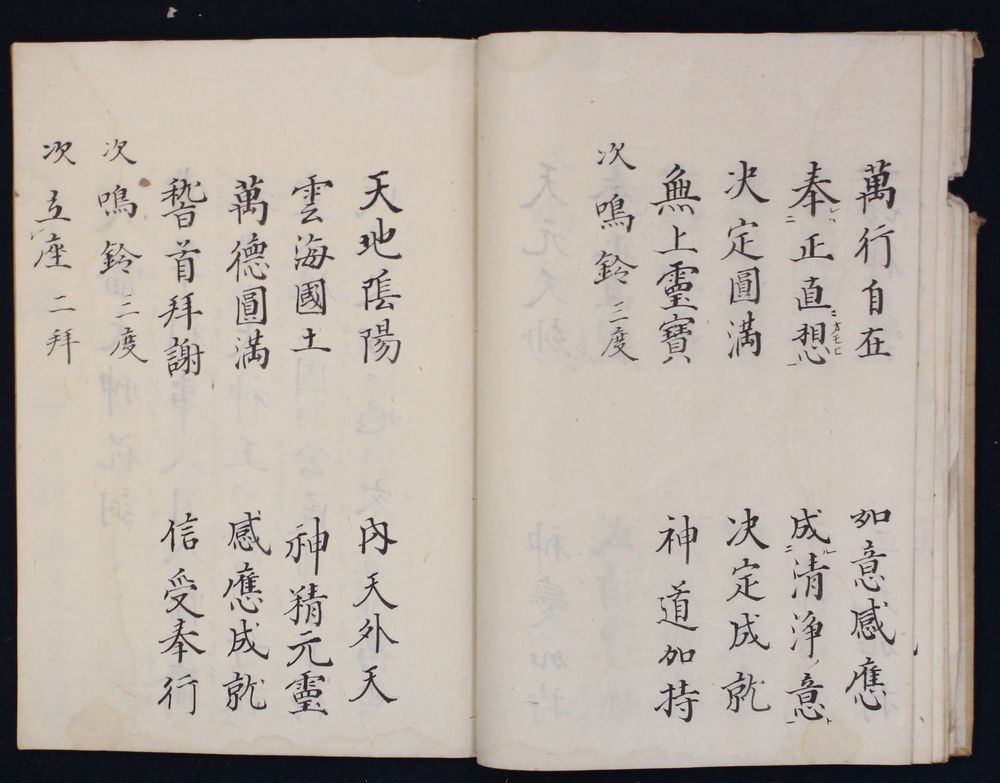 萬行自在 如意感應
奉正直想 成清浄意
决定圓滿 决定成就
無上靈寶 神道加持
次鳴鈴 三度
天地陰陽 内天外天
雲海國土 神精元靈
萬德圓滿 感應成就
稽首拜謝 信受奉行
次鳴鈴 二度
次立座 二拜